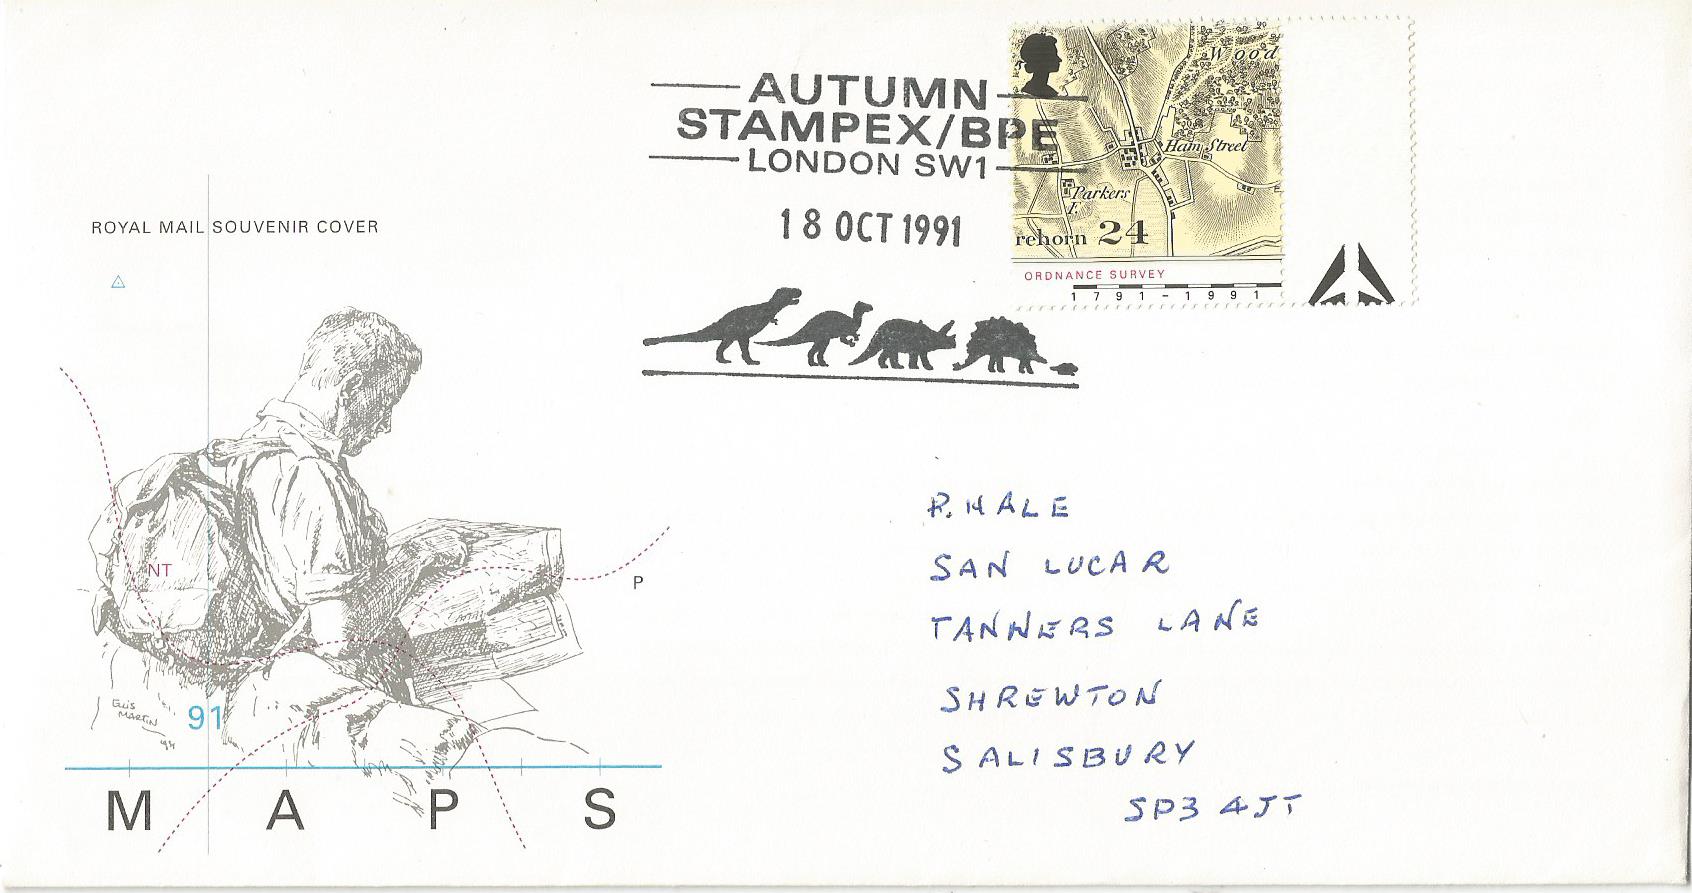 AUTUMN
STAMPEX/BPE
LONDON SW1
18 OCT 1991
Wood
Ham Street
Parkers
F.
rehorn 24
ORDNANCE SURVEY
1 7 9 1 – 1 9 9 1
ROYAL MAIL SOUVENIR COVER
NT
P
ELLIS
MARTIN
91
M A P S
P. HALE
SAN LUCAR
TANNERS LANE
SHREWTON
SALISBURY
SP3 4JT